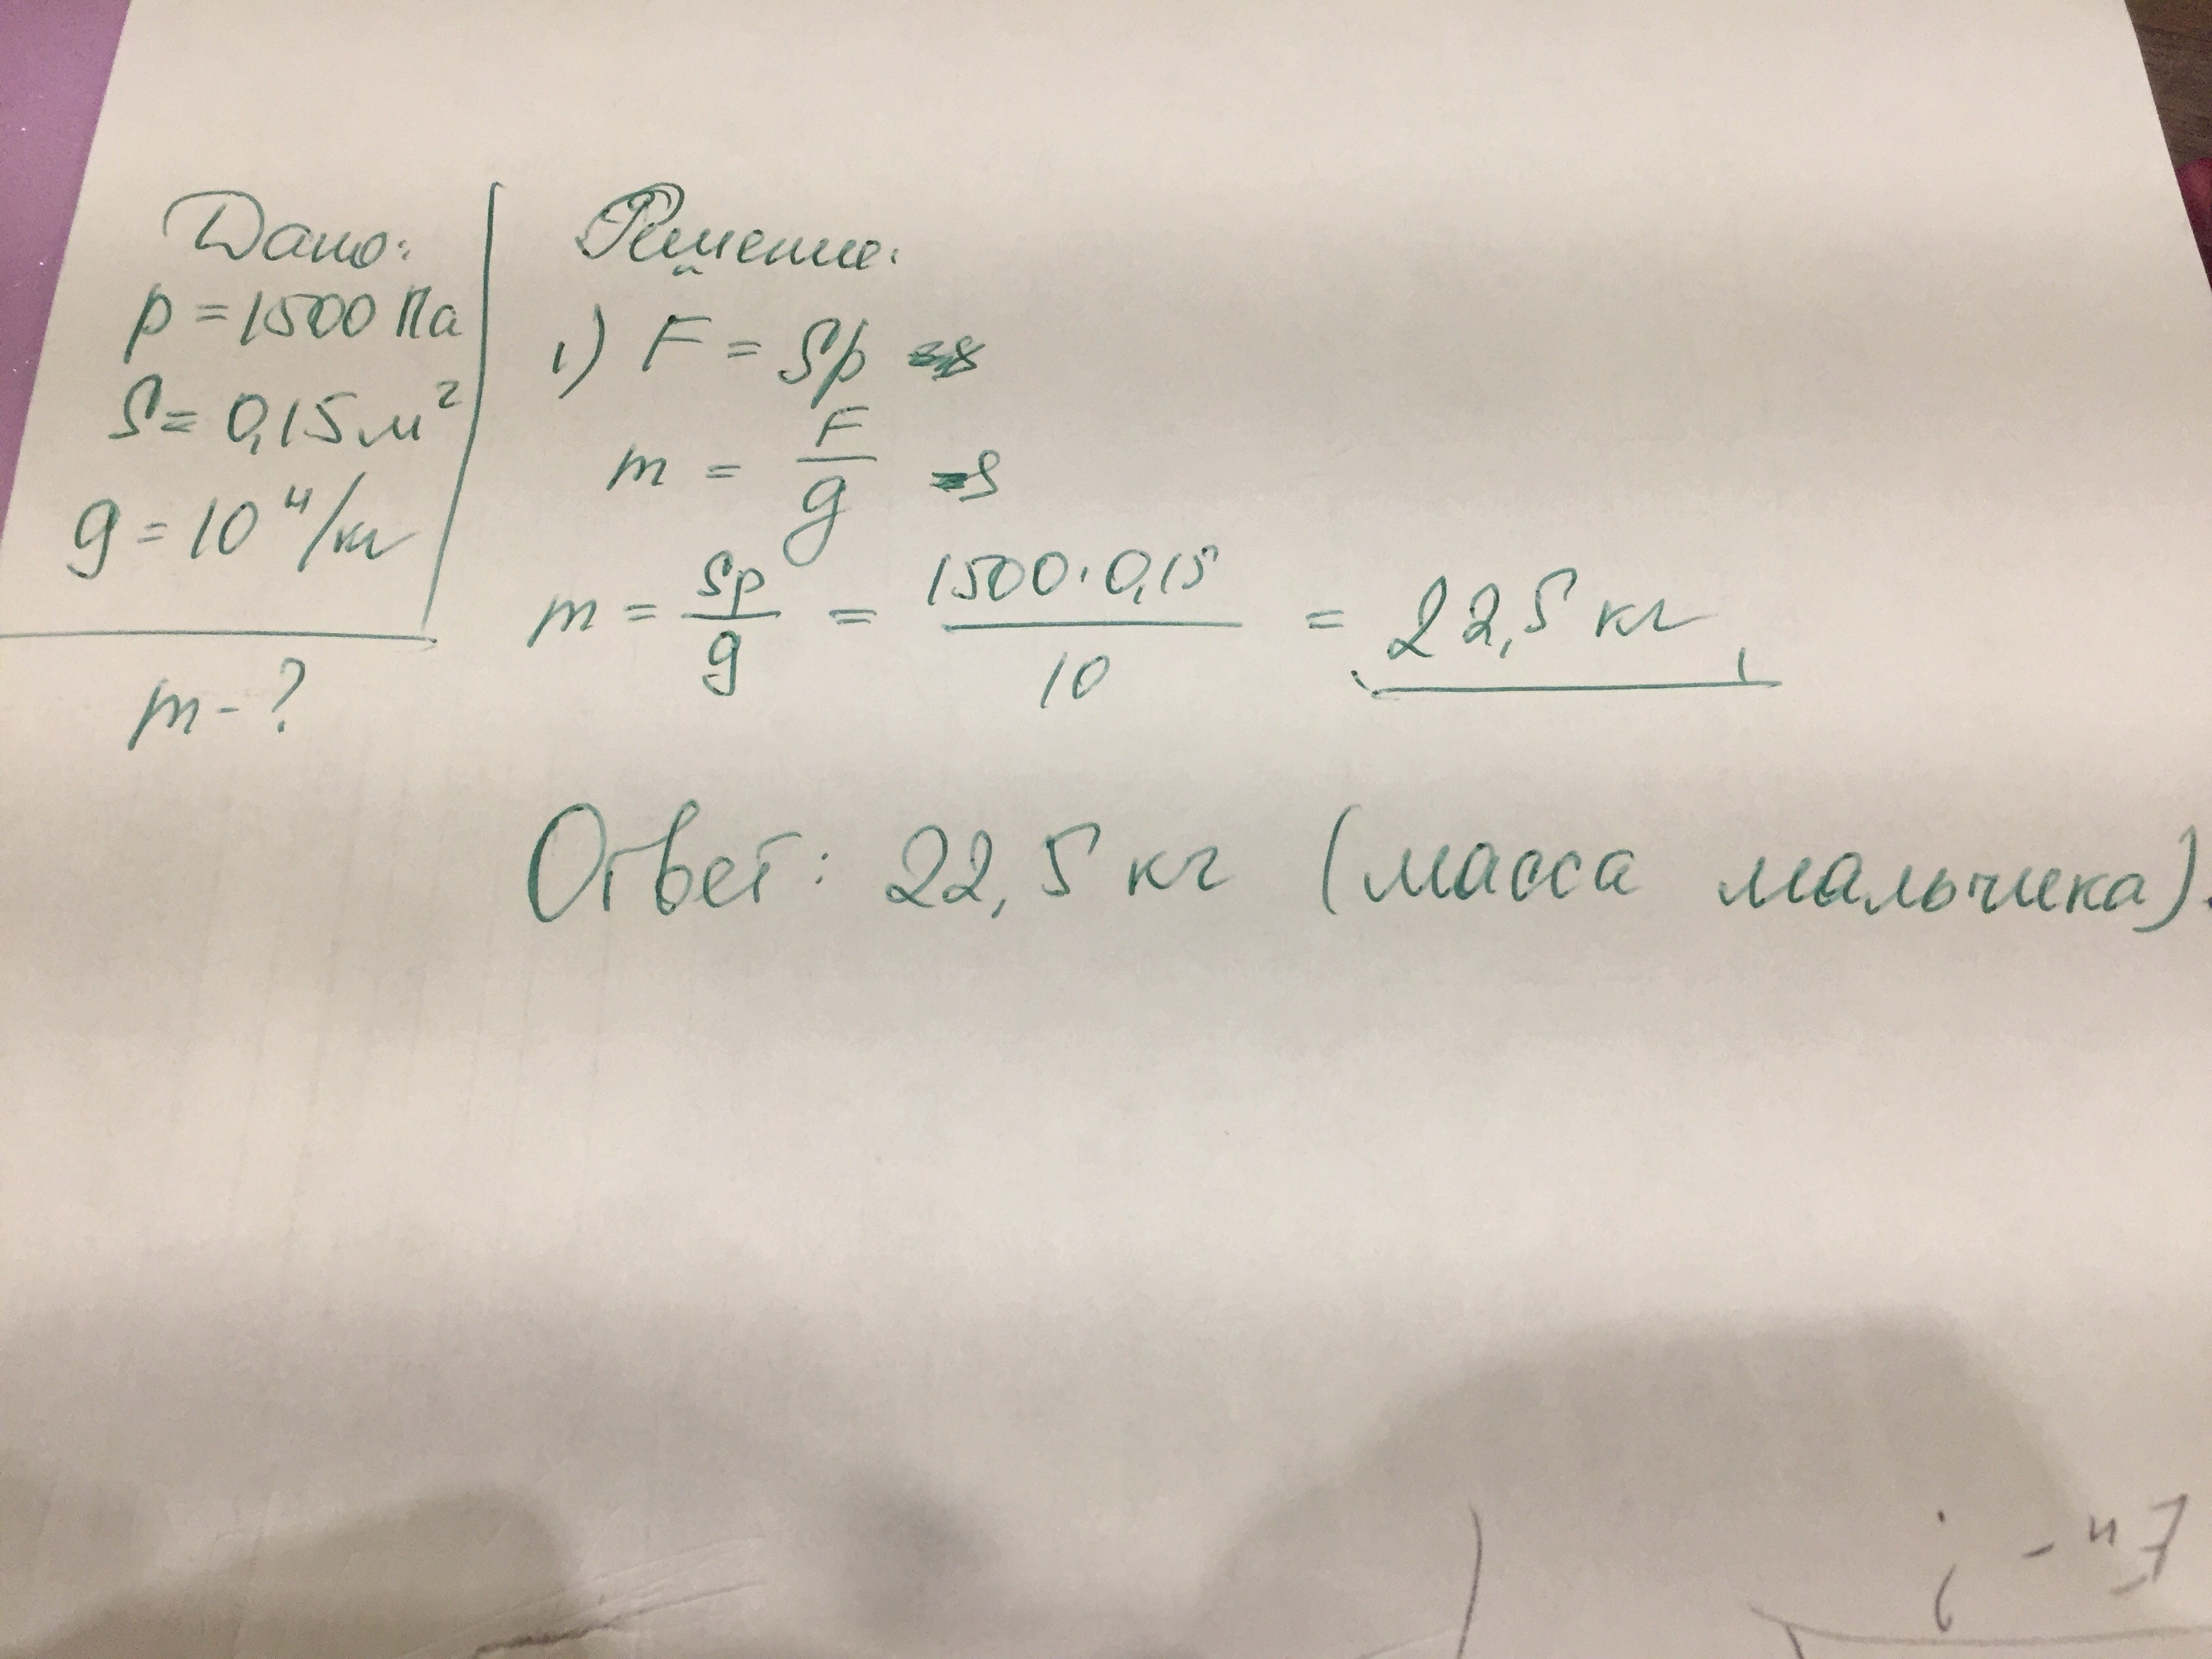 Дано:
p = 1500 Па
S = 0,15 м²
g = 10 н/кг
m - ?
Решение:
1) F = Sp
m = F/g
m = Sp/g = 1500 · 0,15/10 = 22,5 кг
Ответ: 22,5 кг (масса мальчика).